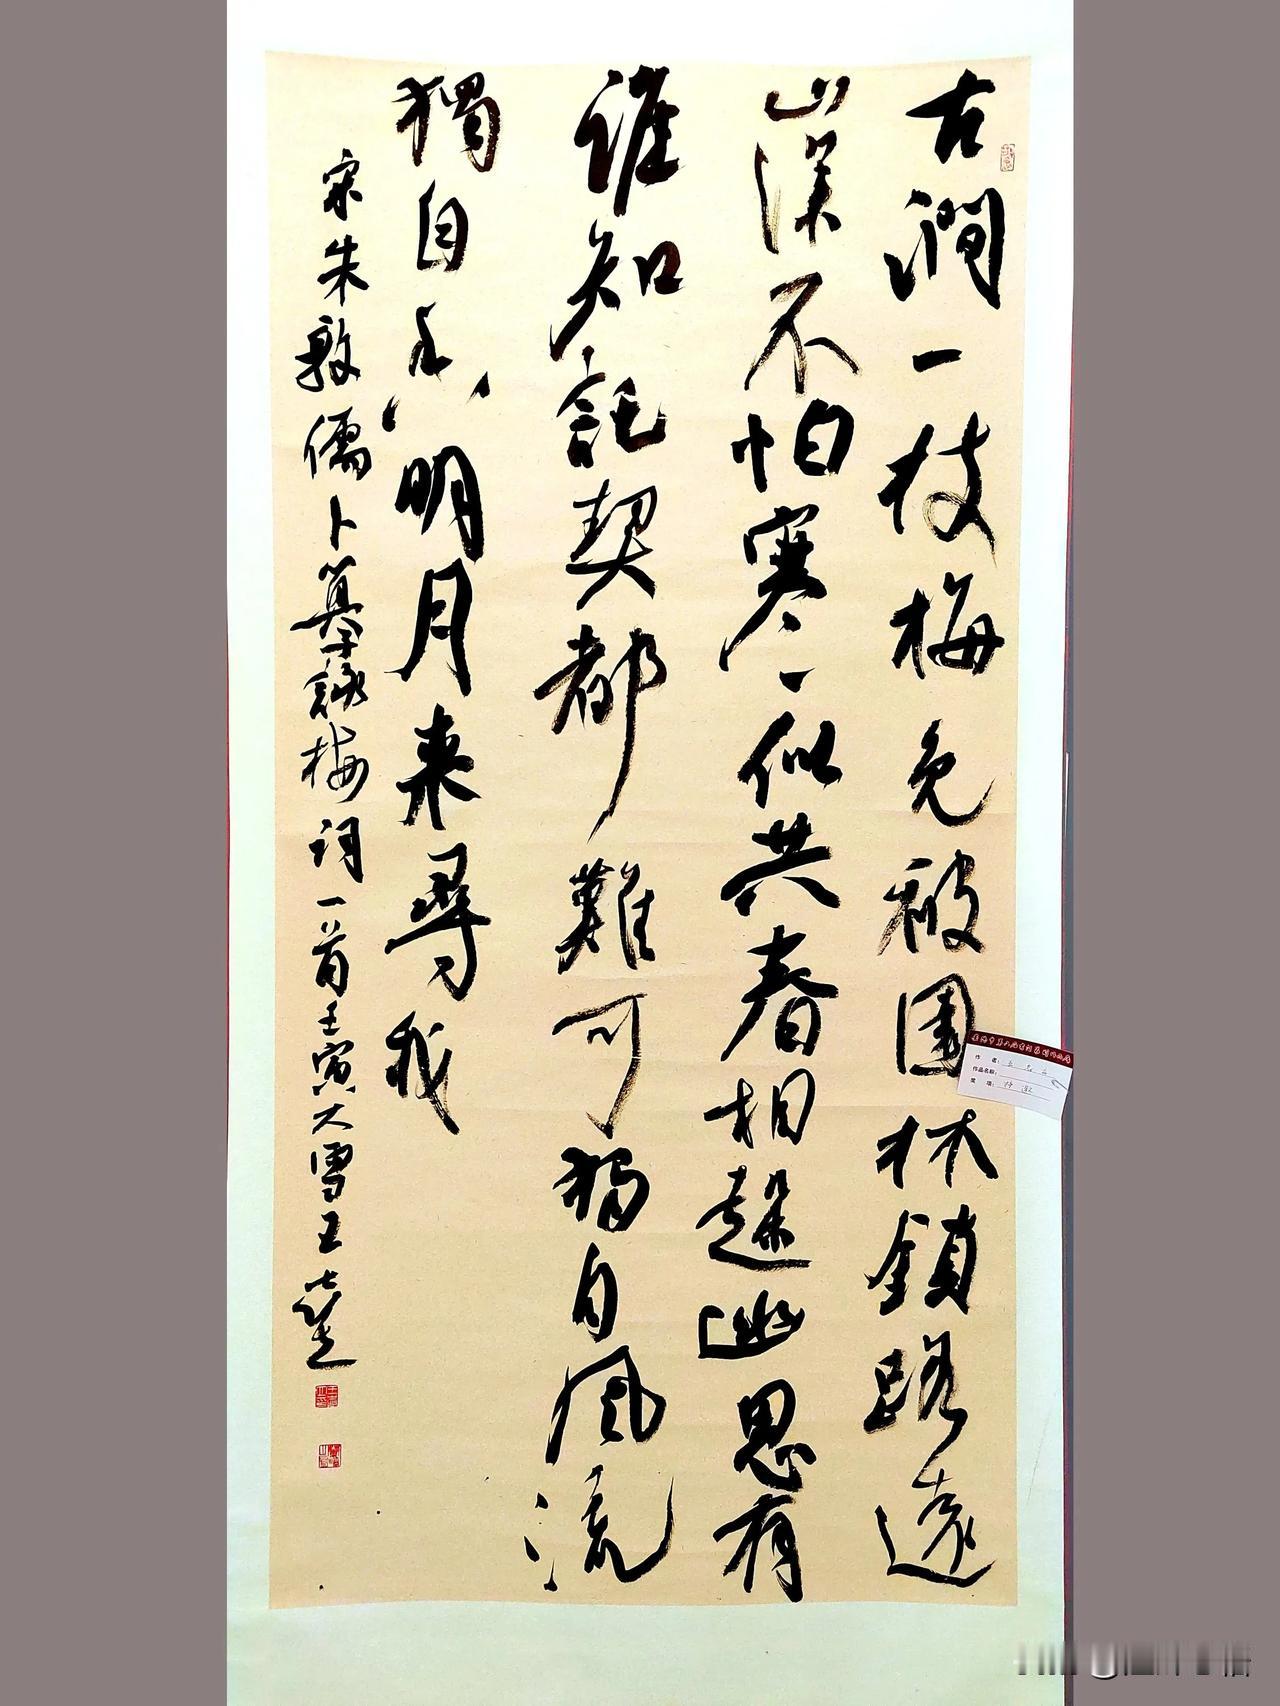 古澗一枝梅免被園林鎖路遠
山深不怕寒似共春相趓幽思有
誰知託契都難可獨自風流
獨自香明月来尋我
宋朱敦儒卜算子詠梅詞一首壬寅大雪王
作 者:
作品名称:
奖 项: